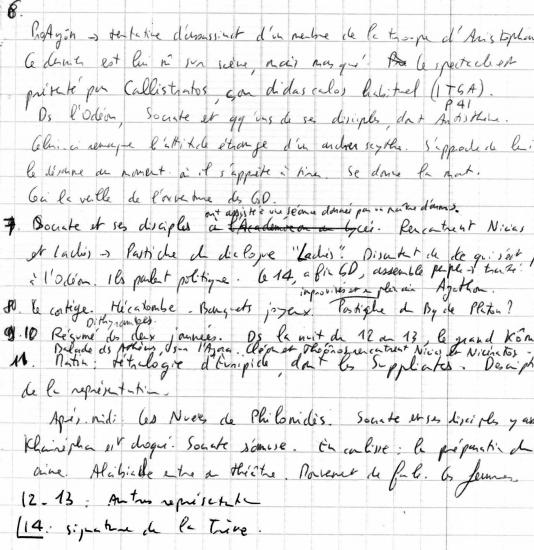 6.
Proagôn → tentative d'assassinat d'un membre de la troupe d'Aristophane
Ce dernier est lui m̂ sur scène, mais masqué. le spectacle est
présenté par Callistratos, son didascalos habituel (ITGA).
P41
Ds l'Odéon, Socrate et qq uns de ses disciples, dont Antisthène.
Celui-ci remarque l'attitude étrange d'un archer scythe. S'approche de lui
le désarme au moment où il s'apprête à tirer. Se donne la mort.
la veille de l'ouverture des GD.
ont assisté à une séance donnée par un maître d'armes.
7. Socrate et ses disciples Rencontrent Nicias
et Lachès → Pastiche du dialogue "Lachès". Discutent de ce qui s'est
à l'Odéon. Ils parlent politique. Le 14, a fin GD, assemble peuple
Agathon.
80. Le cortège. Hécatombe. Banquets joyeux. Pastiche du Bq de Platon?
Dithyrambes
9.10 Résumé des deux journées. Ds la nuit du 12 au 13, le grand Kôm
Balade ds Athènes, sur l'Agora. rencontrent Nicias et Nicératos.
11. Matin: tétralogie d'Euripide, dont les Suppliantes. Descript
de la représentation.
Après-midi: les Nuées de Philonidès. Socrate et ses disciples y
Khairéphon est choqué. Socrate s'amuse. En coulisse: la préparation du
crime. Alcibiade entre au théâtre. Mouvement de foule. les femmes
12-13: Autres représentat
14: signature de la Trêve.